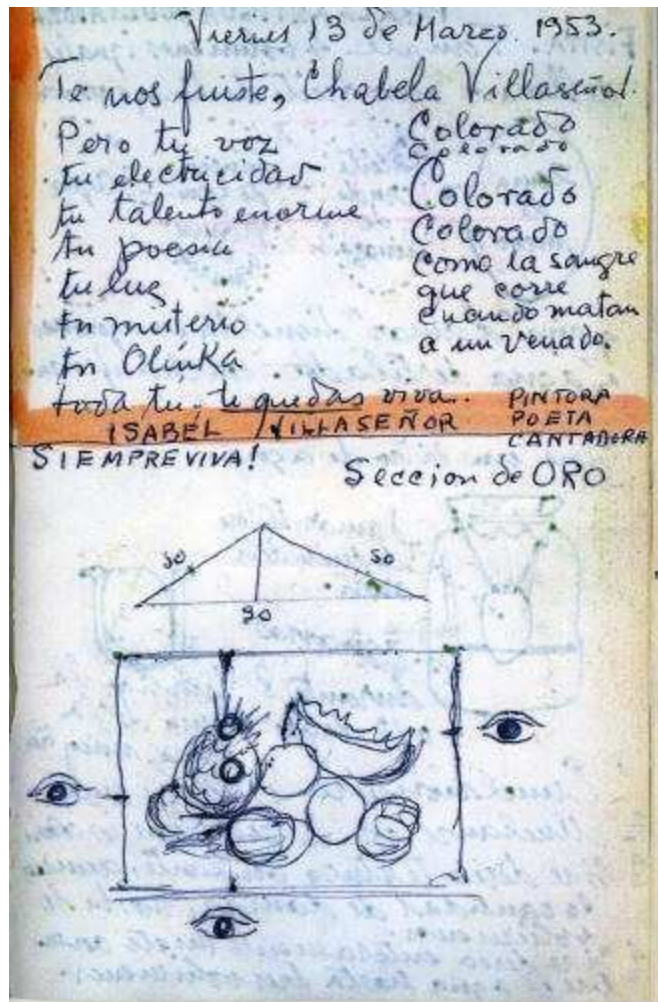 Viernes 13 de Marzo 1953.
Te nos fuiste, Chabela Villaseñor.
Pero tu voz
tu electricidad
tu talento enorme
tu poesia
tu luz
tu misterio
tu Olinka
toda tu, te quedas viva.
Colorado
Colorado
Colorado
Colorado
como la sangre
que corre
cuando matan
a un venado.
ISABEL VILLASEÑOR
PINTORA
POETA
CANTADORA
SIEMPREVIVA!
Seccion de ORO
50
90